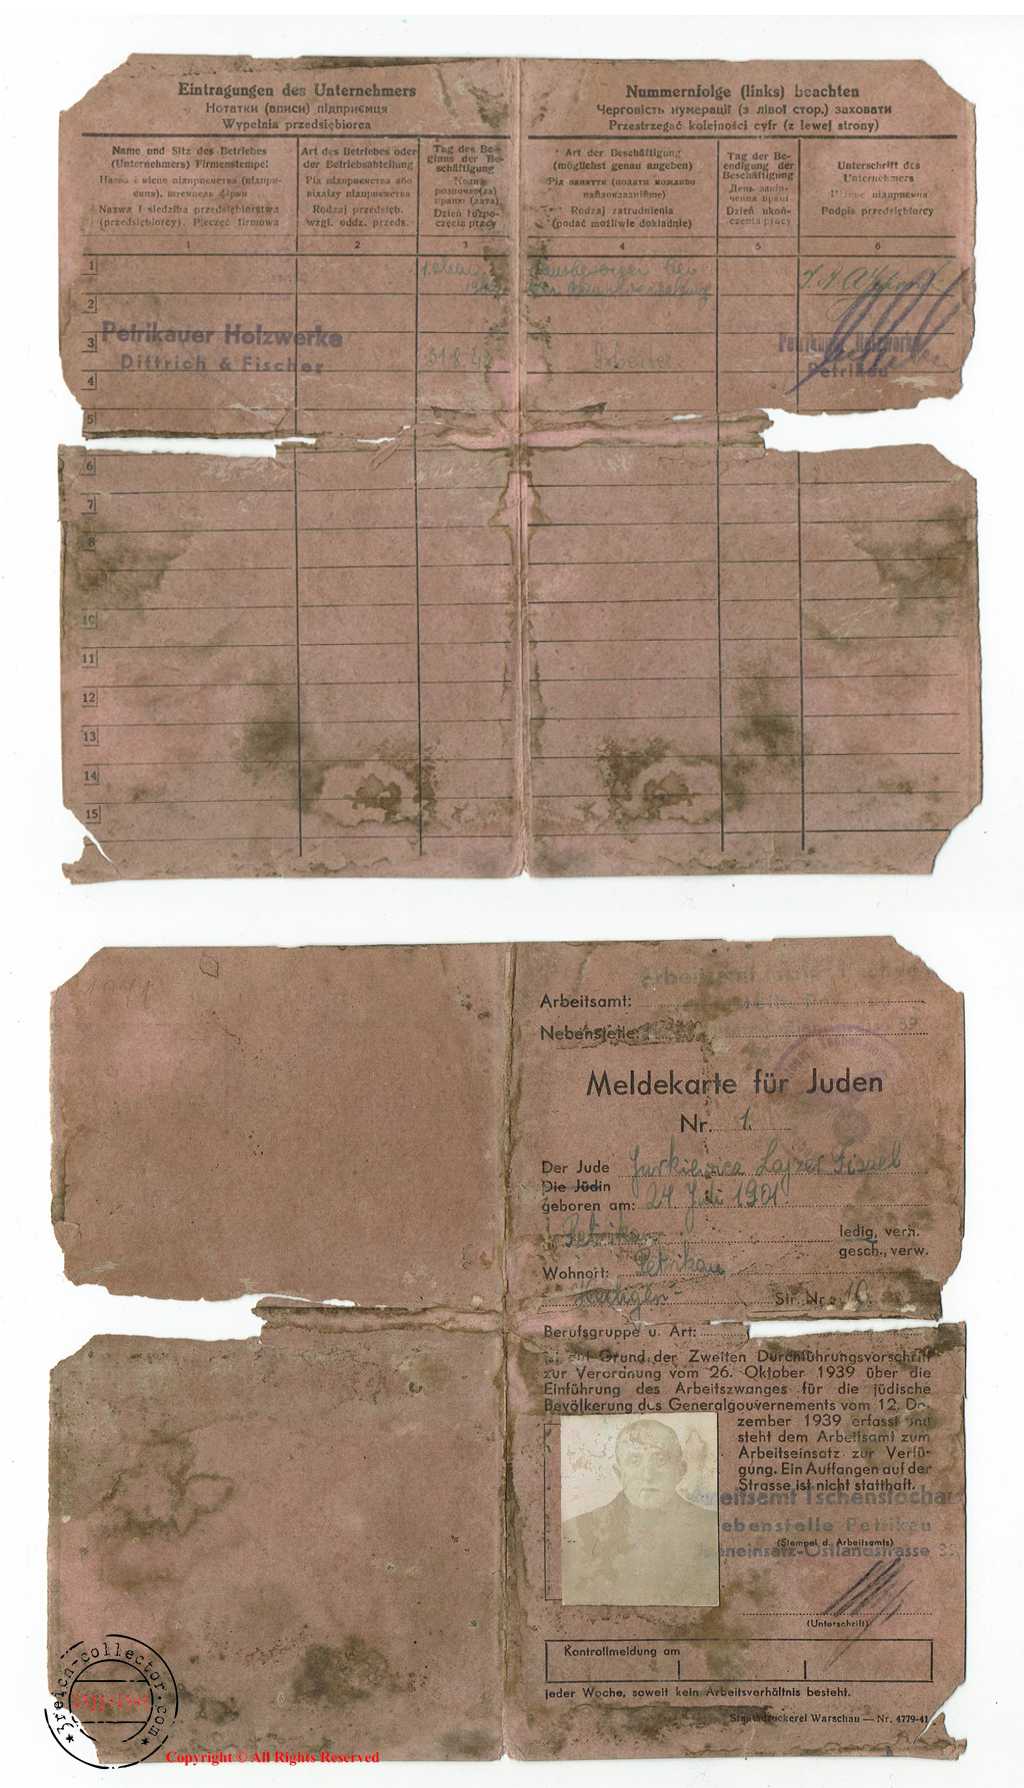 Eintragungen des Unternehmers
Нотатки (вписи) підприємця
Wypełnia przedsiębiorca
Nummernfolge (links) beachten
Черговість нумерації (з лівої стор.) заховати
Przestrzegać kolejności cyfr (z lewej strony)
Name und Sitz des Betriebes
(Unternehmers) Firmenstempel
Nazwa i siedziba przedsiębiorstwa
(przedsiębiorcy). Pieczęć firmowa
Art des Betriebes oder
der Betriebsabteilung
Рід підприємства або
відділу підприємства
Rodzaj przedsięb.
wzgl. oddz. przeds.
Tag des Be-
ginns der Be-
schäftigung
Dzień rozpo-
częcia pracy
Art der Beschäftigung
(möglichst genau angeben)
Рід заняття (подати можливо
Rodzaj zatrudnienia
(podać możliwie dokładnie)
Tag der Be-
endigung der
Beschäftigung
День закін-
чення праці
Dzień ukoń-
czenia pracy
Unterschrift des
Unternehmers
Підпис підприємця
Podpis przedsiębiorcy
1
2
3
4
5
6
1
2
3
4
5
6
7
8
10
11
12
13
14
15
Petrikauer Holzwerke
Dittrich & Fischer
31.8.42
Arbeiter
Petrikauer Holzwerke
Petrikau
1941
Arbeitsamt:
Nebenstelle:
39
Meldekarte für Juden
Nr. 1.
Der Jude Jurkiewicz Lajzer Fiszel
Die Jüdin
geboren am: 24 Juli 1901
Petrikau
ledig, verh.
gesch., verw.
Wohnort: Petrikau
Heiligen- Str. Nr. 10
Berufsgruppe u. Art:
ist auf Grund der Zweiten Durchführungsvorschrift
zur Verordnung vom 26. Oktober 1939 über die
Einführung des Arbeitszwanges für die jüdische
Bevölkerung des Generalgouvernements vom 12. De-
zember 1939 erfasst und
steht dem Arbeitsamt zum
Arbeitseinsatz zur Verfü-
gung. Ein Auffangen auf der
Strasse ist nicht statthaft.
Arbeitsamt Tschenstochau
Nebenstelle Petrikau
(Stempel d. Arbeitsamts)
Judeneinsatz-Ostlandstrasse 39
(Unterschrift)
Kontrollmeldung am
jeder Woche, soweit kein Arbeitsverhältnis besteht.
Staatsdruckerei Warschau — Nr. 4779-41
3reich-collector.com
Copyright © All Rights Reserved